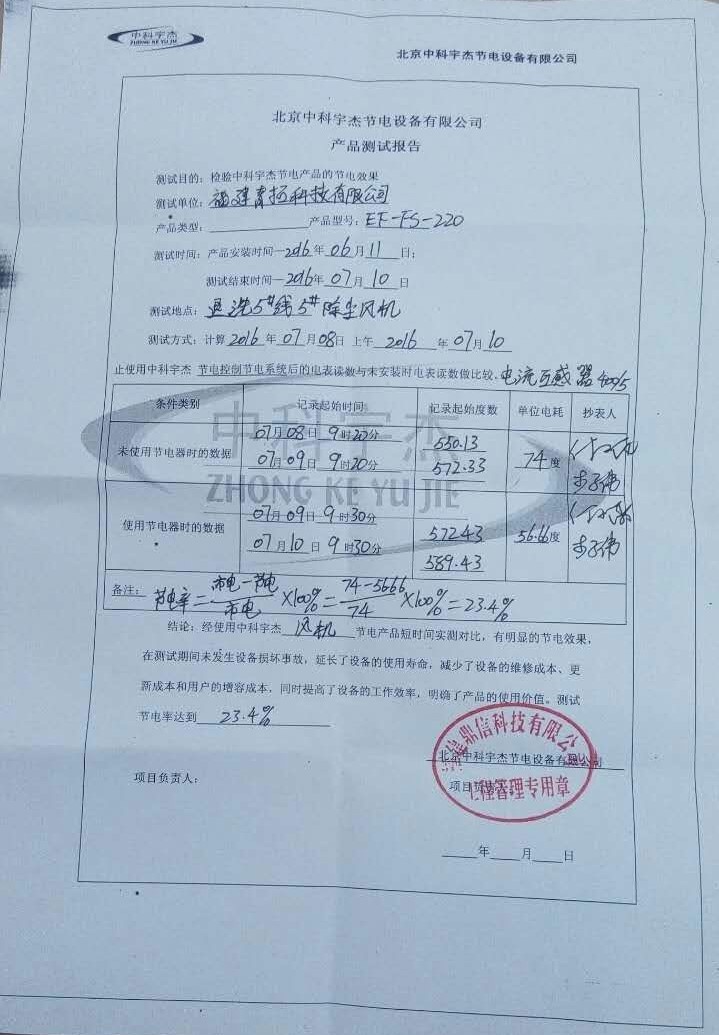 中科宇杰
ZHONG KE YU JIE
北京中科宇杰节电设备有限公司
北京中科宇杰节电设备有限公司
产品测试报告
测试目的：检验中科宇杰节电产品的节电效果
测试单位：福建青拓科技有限公司
产品类型： 产品型号：EF-FS-220
测试时间：产品安装时间—2016年06月11日；
测试结束时间—2016年07月10日
测试地点：退洗5#线5#除尘风机
测试方式：计算2016年07月08日上午 2016年07月10
止使用中科宇杰 节电控制节电系统后的电表读数与未安装时电表读数做比较。电流互感器400/5
条件类别 记录起始时间 记录起始度数 单位电耗 抄表人
未使用节电器时的数据 07月08日9时20分 550.13 74度
07月09日9时20分 572.33
中科宇杰
ZHONG KE YU JIE
使用节电器时的数据 07月09日9时30分 572.43 56.66度
07月10日9时30分 589.43
备注：节电率=市电-节电/市电×100%=74-56.66/74×100%=23.4%
结论：经使用中科宇杰 风机 节电产品短时间实测对比，有明显的节电效果，
在测试期间未发生设备损坏事故，延长了设备的使用寿命，减少了设备的维修成本、更
新成本和用户的增容成本，同时提高了设备的工作效率，明确了产品的使用价值。测试
节电率达到 23.4%
北京中科宇杰节电设备有限公司
项目负责人：
项目负责人
建鼎信科技有限公
工程管理专用章
年 月 日